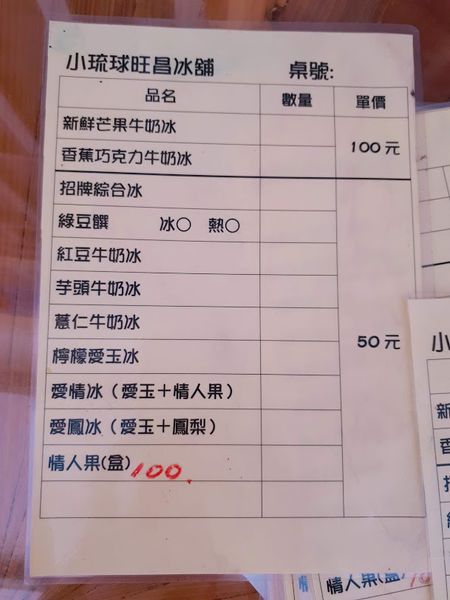 小琉球旺昌冰舖 桌號:
品名 數量 單價
新鮮芒果牛奶冰
香蕉巧克力牛奶冰
100元
招牌綜合冰
綠豆饌 冰○ 熱○
紅豆牛奶冰
芋頭牛奶冰
薏仁牛奶冰
檸檬愛玉冰
50元
愛情冰（愛玉＋情人果）
愛鳳冰（愛玉＋鳳梨）
情人果(盒) 100.
小
情人果(盒)